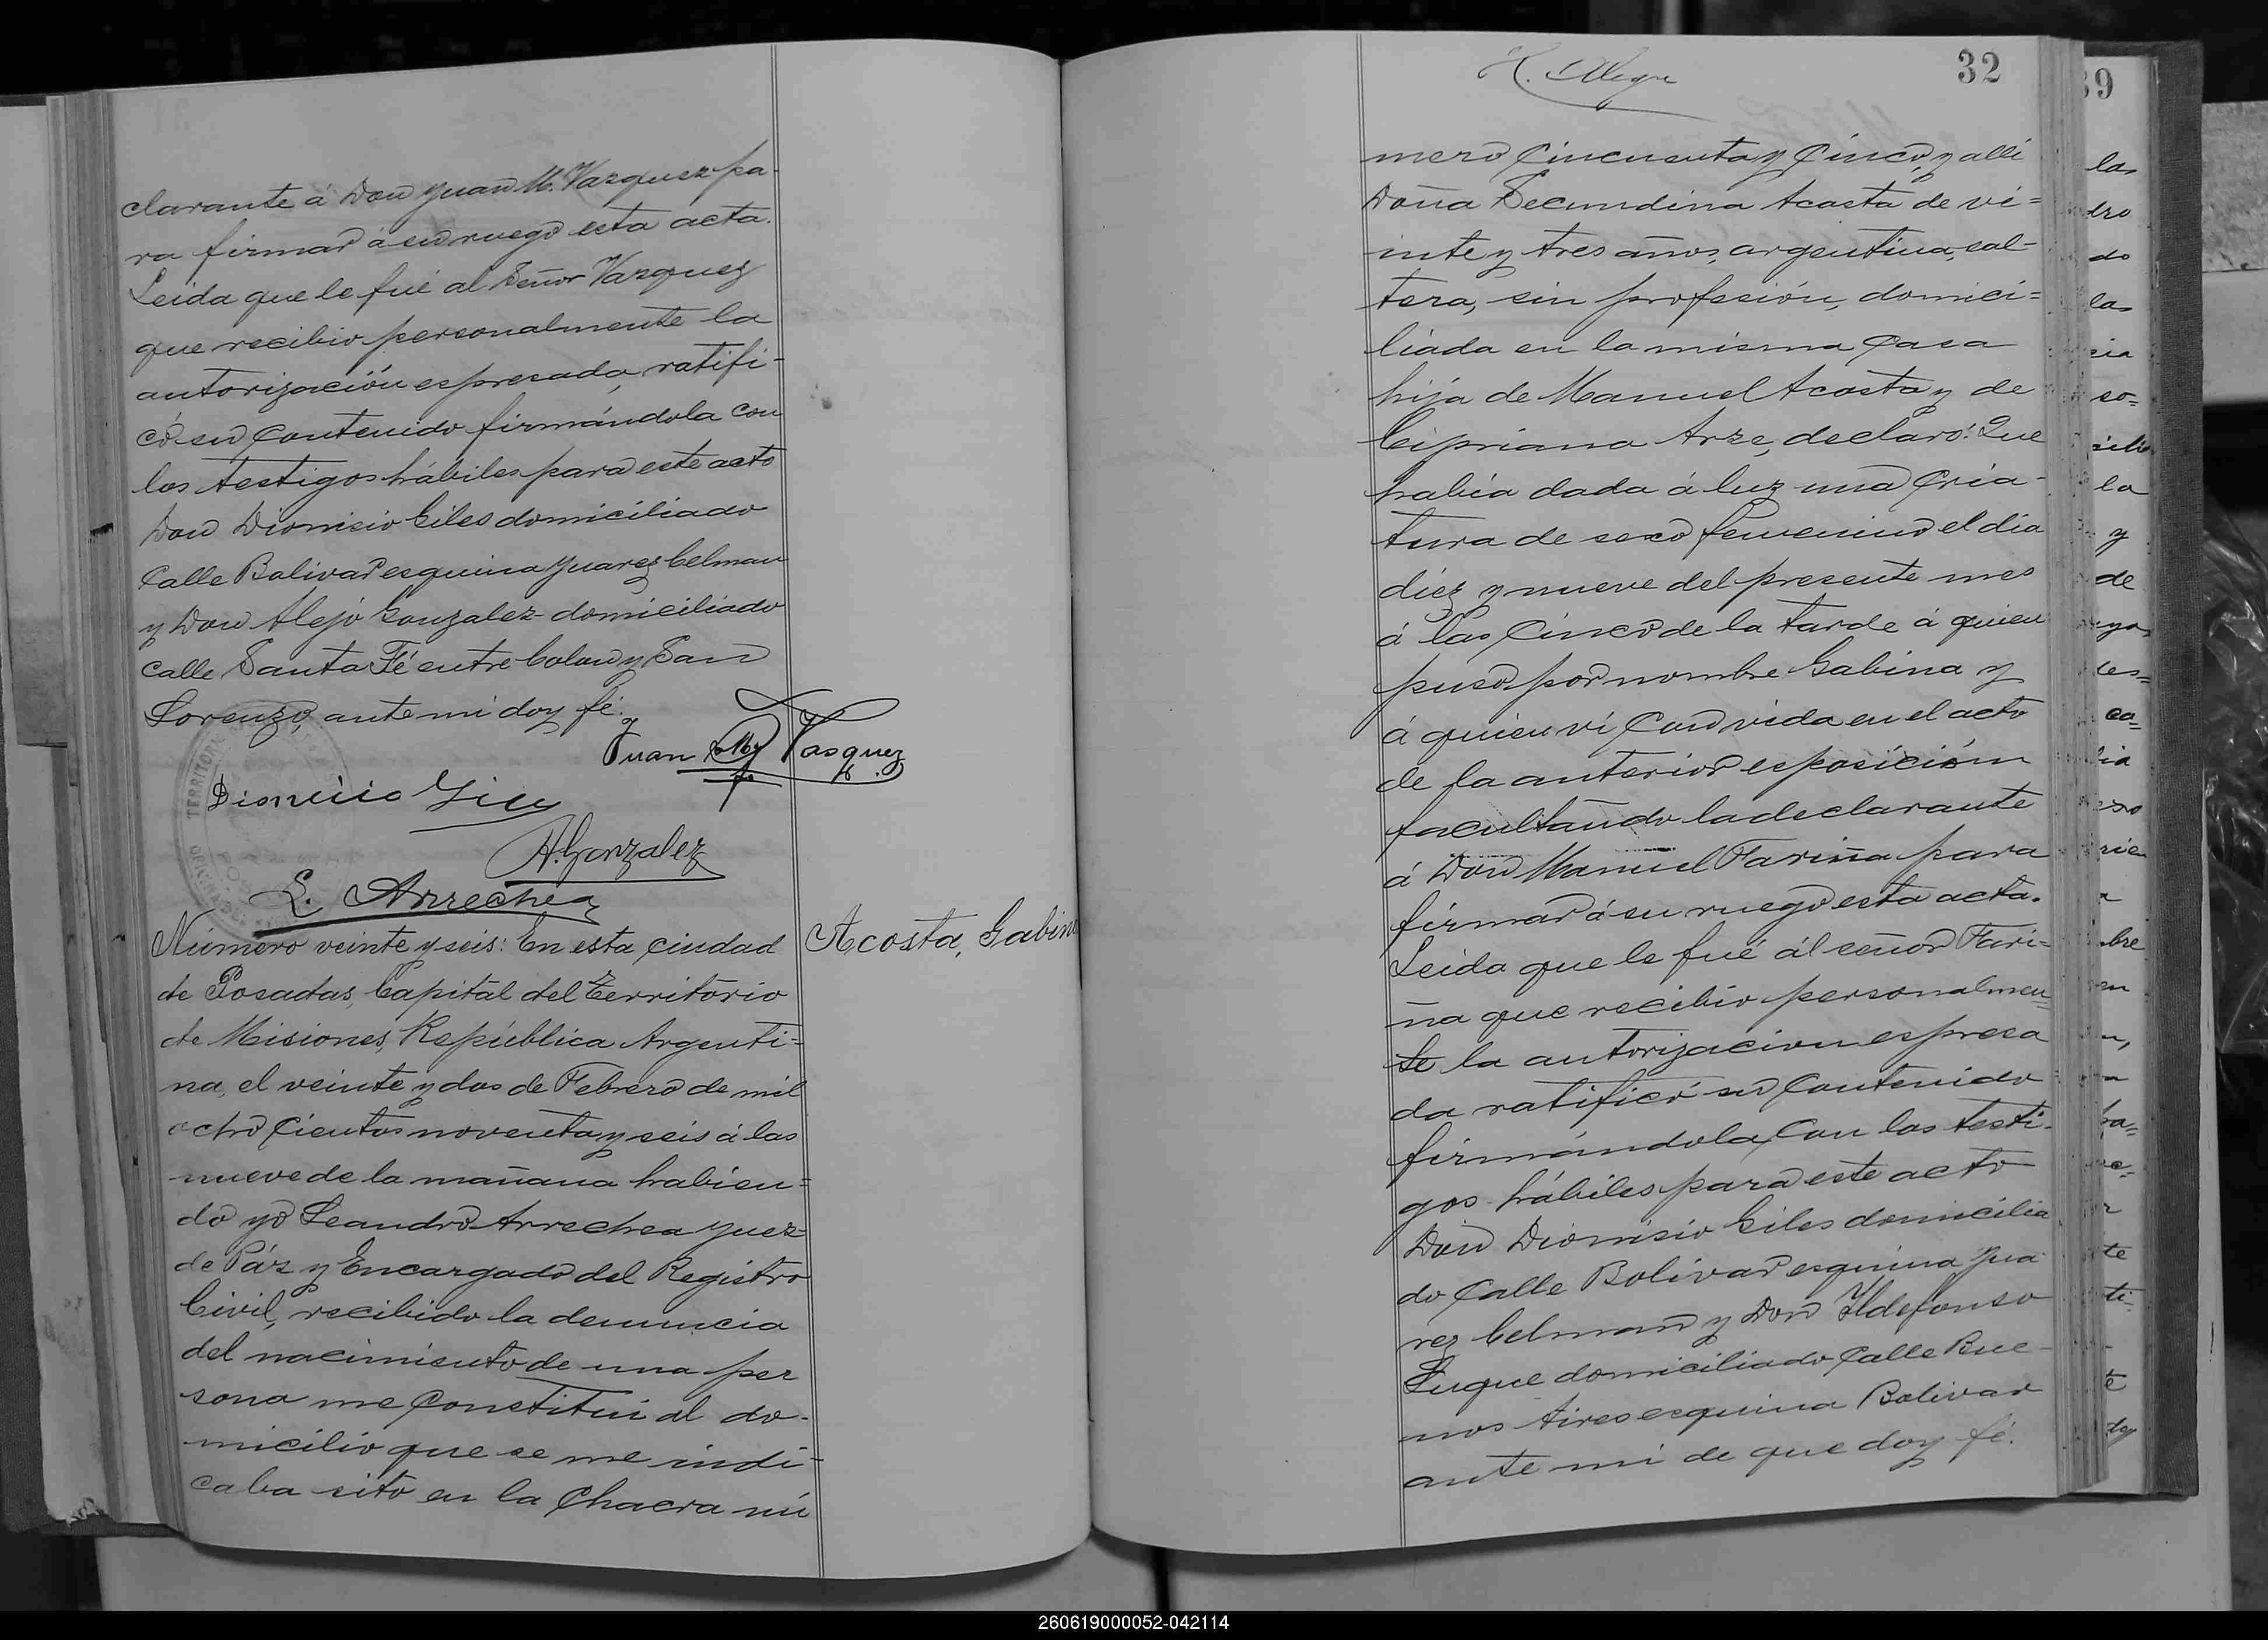 clarante á Don Yuan M. Vazquez pa-
ra firmar á su ruego esta acta.
Leida que le fué al Señor Vazquez
que recibio personalmente la
autorización espresada, ratifi-
có su contenido firmándola con
los testigos hábiles para este acto
Don Dionisio Giles domiciliado
Calle Bolivar esquina Yuarez Celman
y Don Alejo Gonzalez domiciliado
calle Santa Fé entre Colon y San
Lorenzo, ante mi doy fé.
Juan M. Vasquez
Dionicio Giles
A. Gonzalez
L. Arrechea
Número veinte y seis: En esta ciudad
de Posadas, Capital del Territorio
de Misiones, República Argenti=
na, el veinte y dos de Febrero de mil
ocho cientos noventa y seis á las
nueve de la mañana habien=
do yo Leandro Arrechea Yuez
de Páz y Encargado del Registro
Civil, recibido la denuncia
del nacimiento de una per
sona me constitui al do-
micilio que se me indi-
caba sito en la Chacra nú
Acosta, Gabina
32
mero Cincuenta y Cinco, y alli
Doña Secundina Acosta de ve=
inte y tres años, argentina, sol-
tera, sin profesión, domici=
liada en la misma casa
hija de Manuel Acosta y de
Cipriana Arze, declaró: Que
habia dada á luz una Cria-
tura de sexo femenino el dia
diez y nueve del presente mes
á las Cinco de la tarde á quien
puso por nombre Gabina y
á quien vi con vida en el acto
de la anterior esposición
facultando la declarante
á Don Manuel Fariña para
firmar á su ruego esta acta.
Leida que le fué ál señor Fari=
ña que recibio personalmen=
te la autorizacion espresa
da ratificó su contenido
firmándola con los testi-
gos hábiles para este acto
Don Dionisio Giles domicilia
do Calle Bolivar esquina Yua
rez Celman y Don Yldefonso
Luque domiciliado Calle Bue-
nos Aires esquina Bolivar
ante mi de que doy fé.
39
260619000052-042114